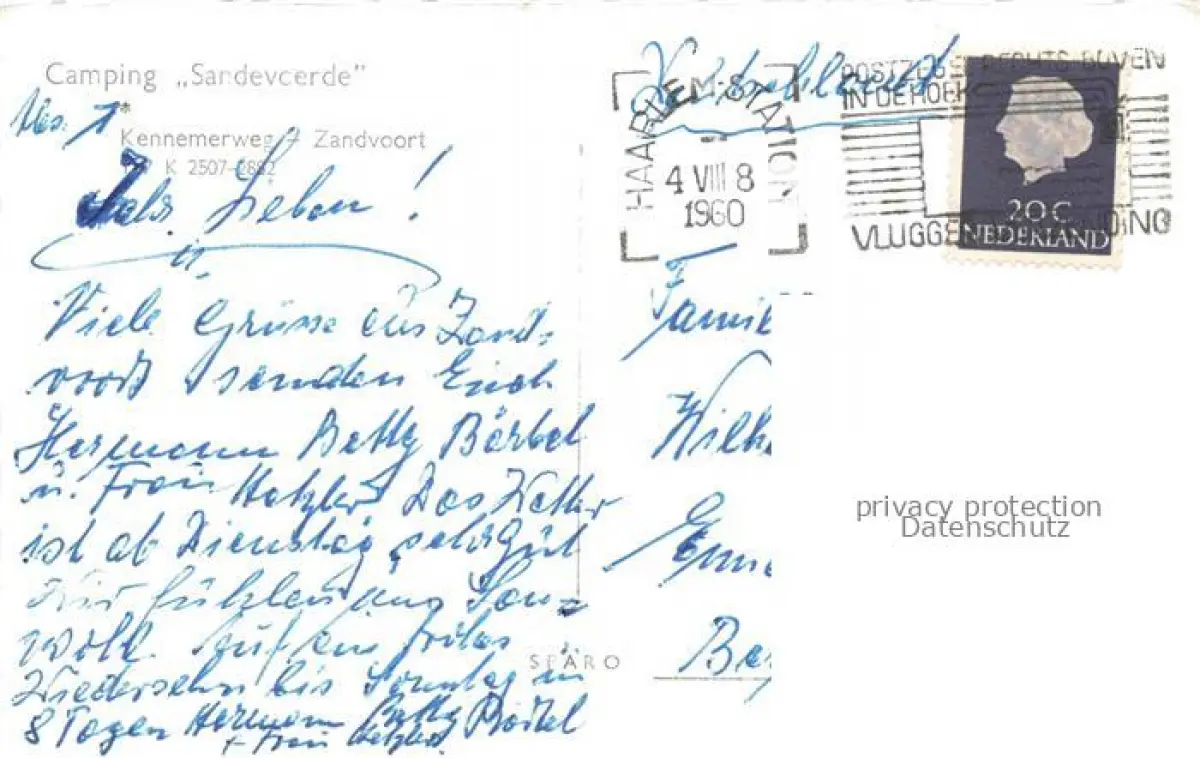 Camping „Sandevoerde"
Abs. *
Kennemerweg 7 Zandvoort
K 2507-6882
Ihr Lieben!
Viele Grüsse aus Zand-
voort senden Euch
Hermann Betty Bärbel
u. Frau Hetzler Das Wetter
ist ab Dienstag sehr gut
wir fühlen uns Sau-
wohl. Auf ein frohes
Wiedersehn bis Sonntag in
8 Tagen Hermann Betty Bärbel
+ Frau Hetzler
SPARO
Deutschland
HAARLEM-STATION
4 VIII 8
1960
POSTZEGEL RECHTS BOVEN
IN DE HOEK
VLUGGE
20C
NEDERLAND
Famil
Wilh
Be
privacy protection
Datenschutz